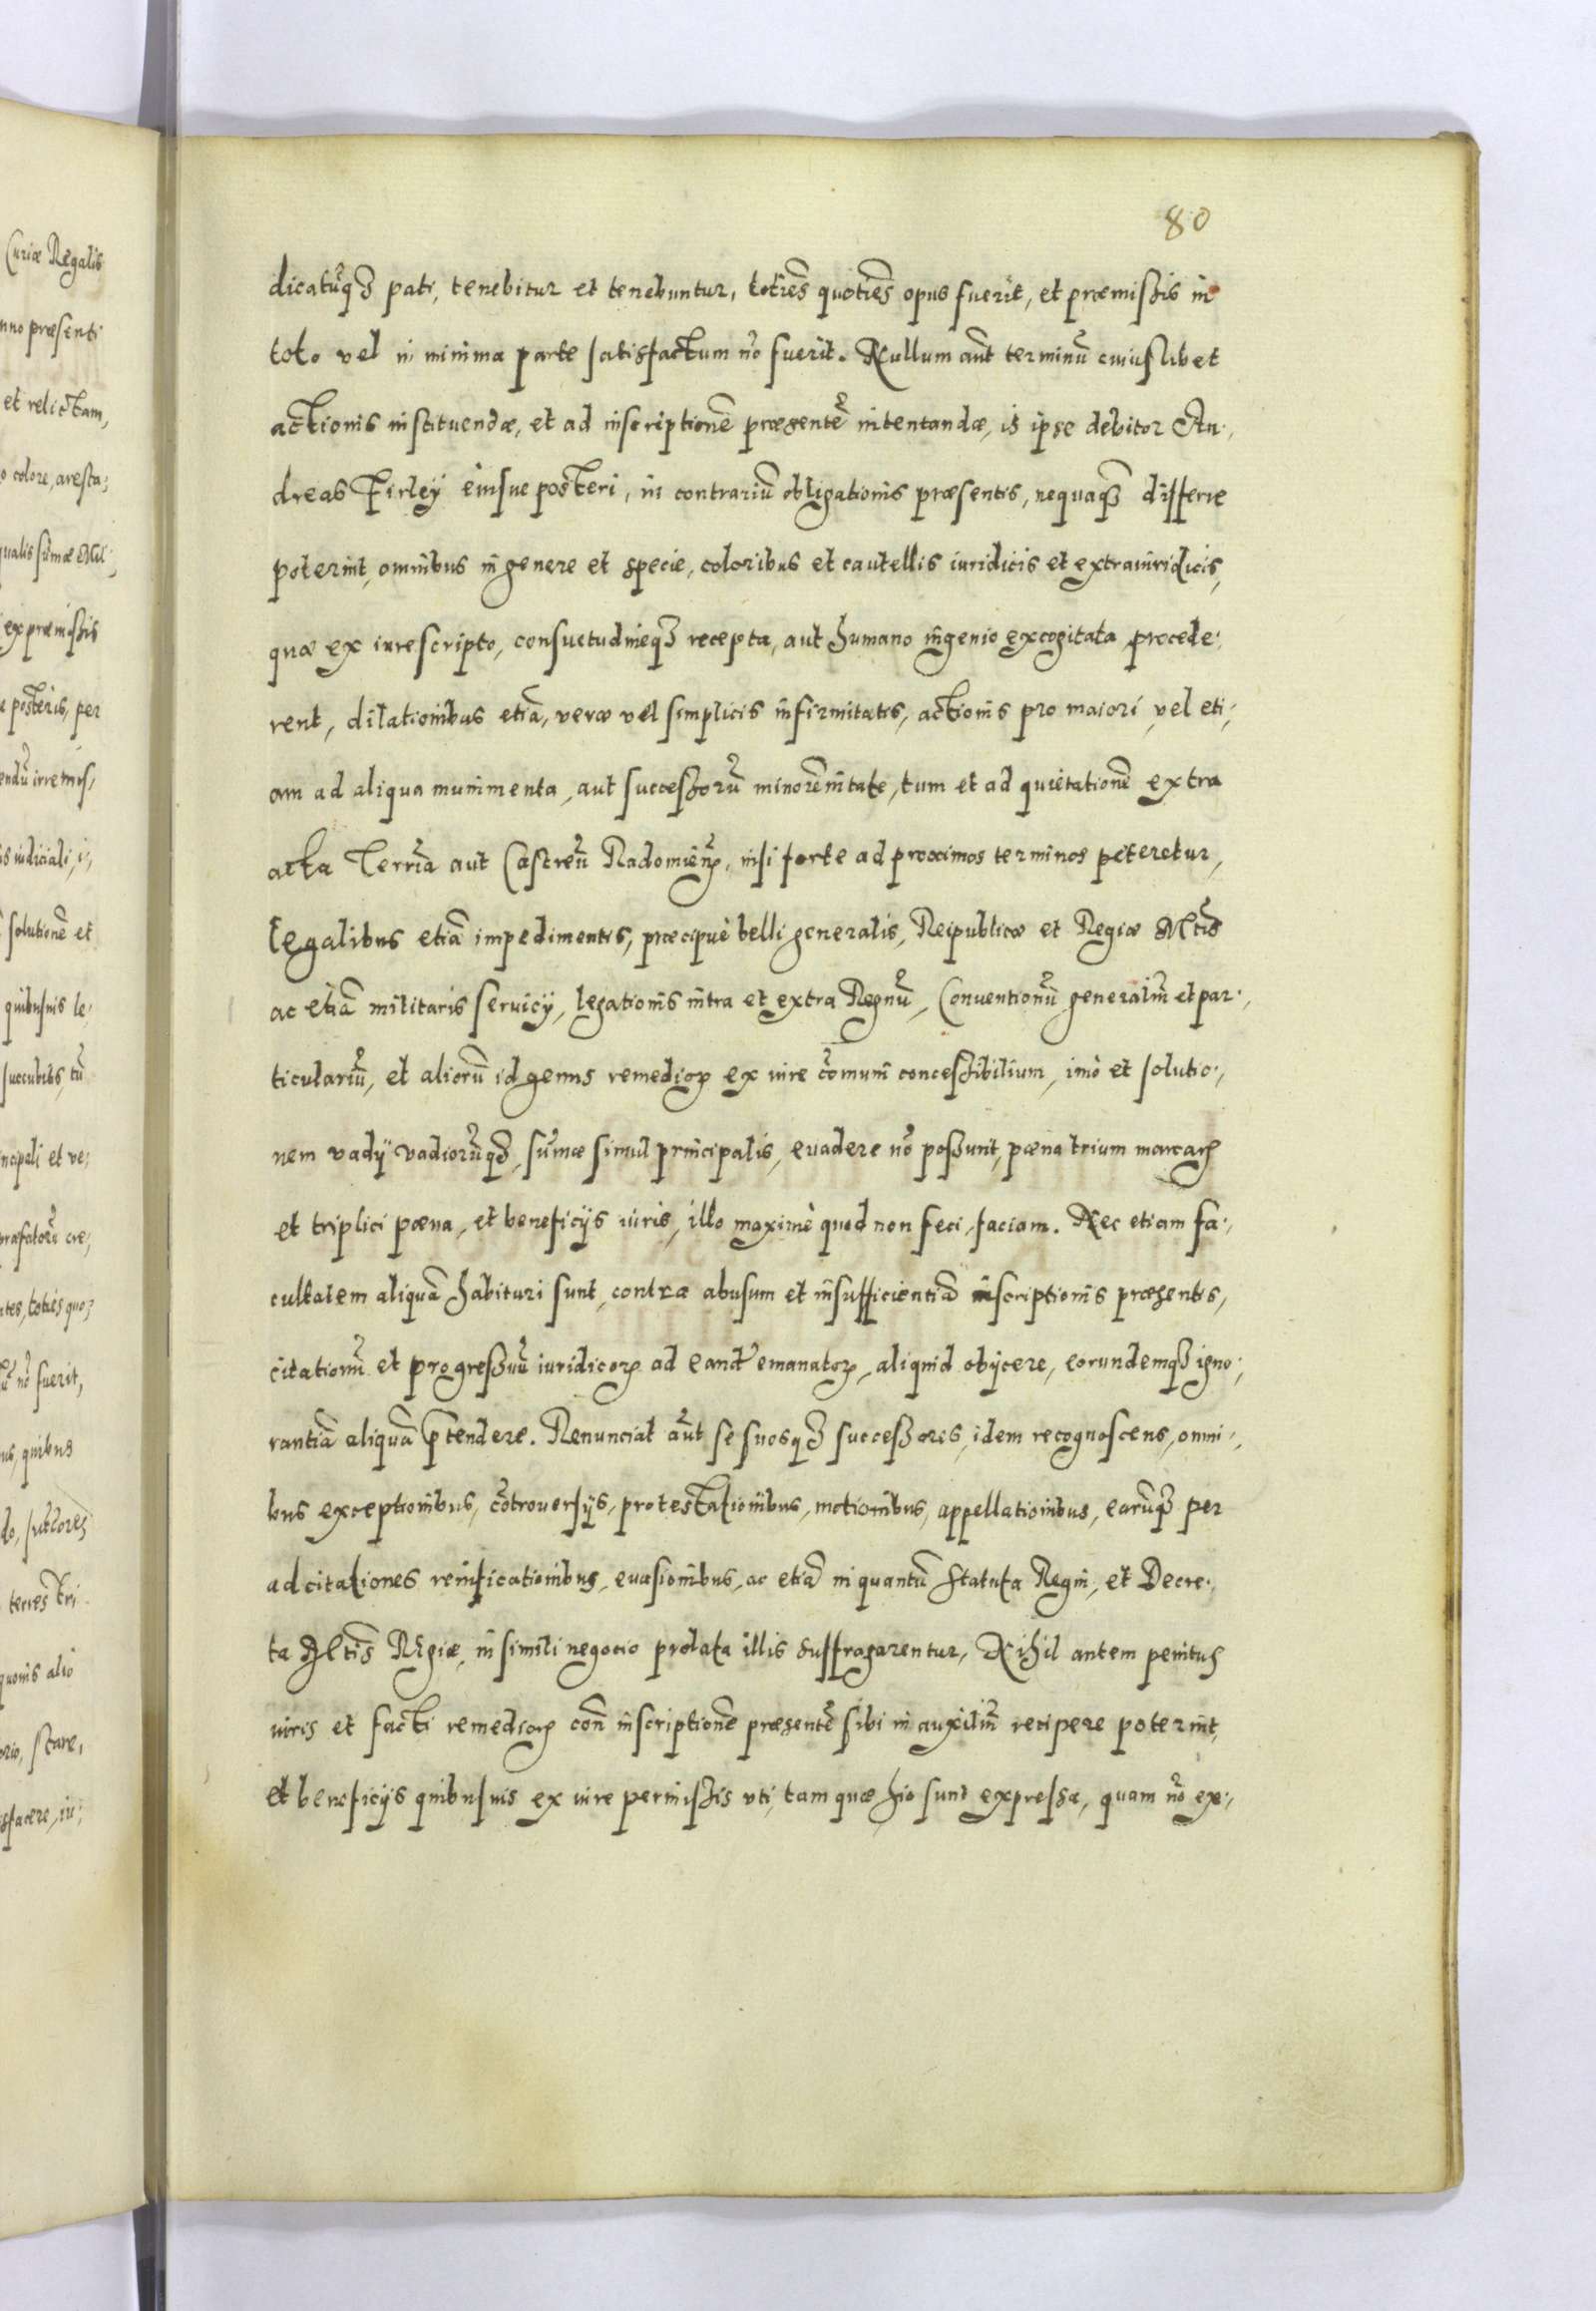 80
dicatũq3 pati, tenebitur et tenebuntur, totiẽs quotiẽs opus fuerit, et præmissis in
toto vel in minima parte satisfactum nõ fuerit. Nullum aũt terminũ cuiuslibet
actionis instituendæ, et ad inscriptionẽ præsentẽ intentandæ, is ipse debitor An-
dreas Firleÿ eiusue posteri, in contrariũ obligationis præsentis, nequaq3 differre
poterint, omnibus in genere et specie, coloribus et cautellis iuridicis et extraiuridicis,
quæ ex iure scripto, consuetudineq3 recepta, aut humano ingenio excogitata procede-
rent, dilationibus etiã, veræ vel simplicis infirmitatis, actionis pro maiori, vel eti-
am ad aliqua munimenta, aut successorũ minorẽnitate, tum et ad quietationẽ extra
acta Terrĩa aut Castreñ Radomieñ, nisi forte ad proximos terminos peteretur,
legalibus etiã impedimentis, præcipuè belli generalis, Reipublicæ et Regiæ Mtĩs
ac etiã militaris seruicÿ, legationis intra et extra Regnũ, Conventionũ generaliũ et par-
ticulariũ, et aliorũ id genus remedioꝝ ex iure cõmuni concessibilium, imò et solutio-
nem vadÿ vadiorũq3, sũmæ simul principalis, euadere nõ possunt, pæna trium marcaꝝ
et triplici pæna, et beneficÿs iuris, illo maximè quod non feci, faciam. Nec etiam fa-
cultatem aliquã habituri sunt, contra abusum et insufficientiã inscriptionis præsentis,
citationũ et progressuũ iuridicoꝝ ad eand̃ emanatoꝝ, aliquid obÿcere, eorundemq3 igno-
rantiã aliquã p̃tendere. Renunciat aũt se suosq3 successores, idem recognoscens, omni-
bus exceptionibus, cõtrouersÿs, protestationibus, motionibus, appellationibus, earũq3 per
adcitationes reinficationibus, euasionibus, ac etiã in quantũ statuta Regni, et Decre-
ta Mtĩs Regiæ, in simili negocio prolata illis suffragarentur, Nihil autem penitus
iuris et facti remedioꝝ coñ inscriptionẽ præsentẽ sibi in auxiliũ recipere poterint,
et beneficÿs quibusuis ex iure permissis vti, tam quæ hic sunt expressa, quam nõ ex-